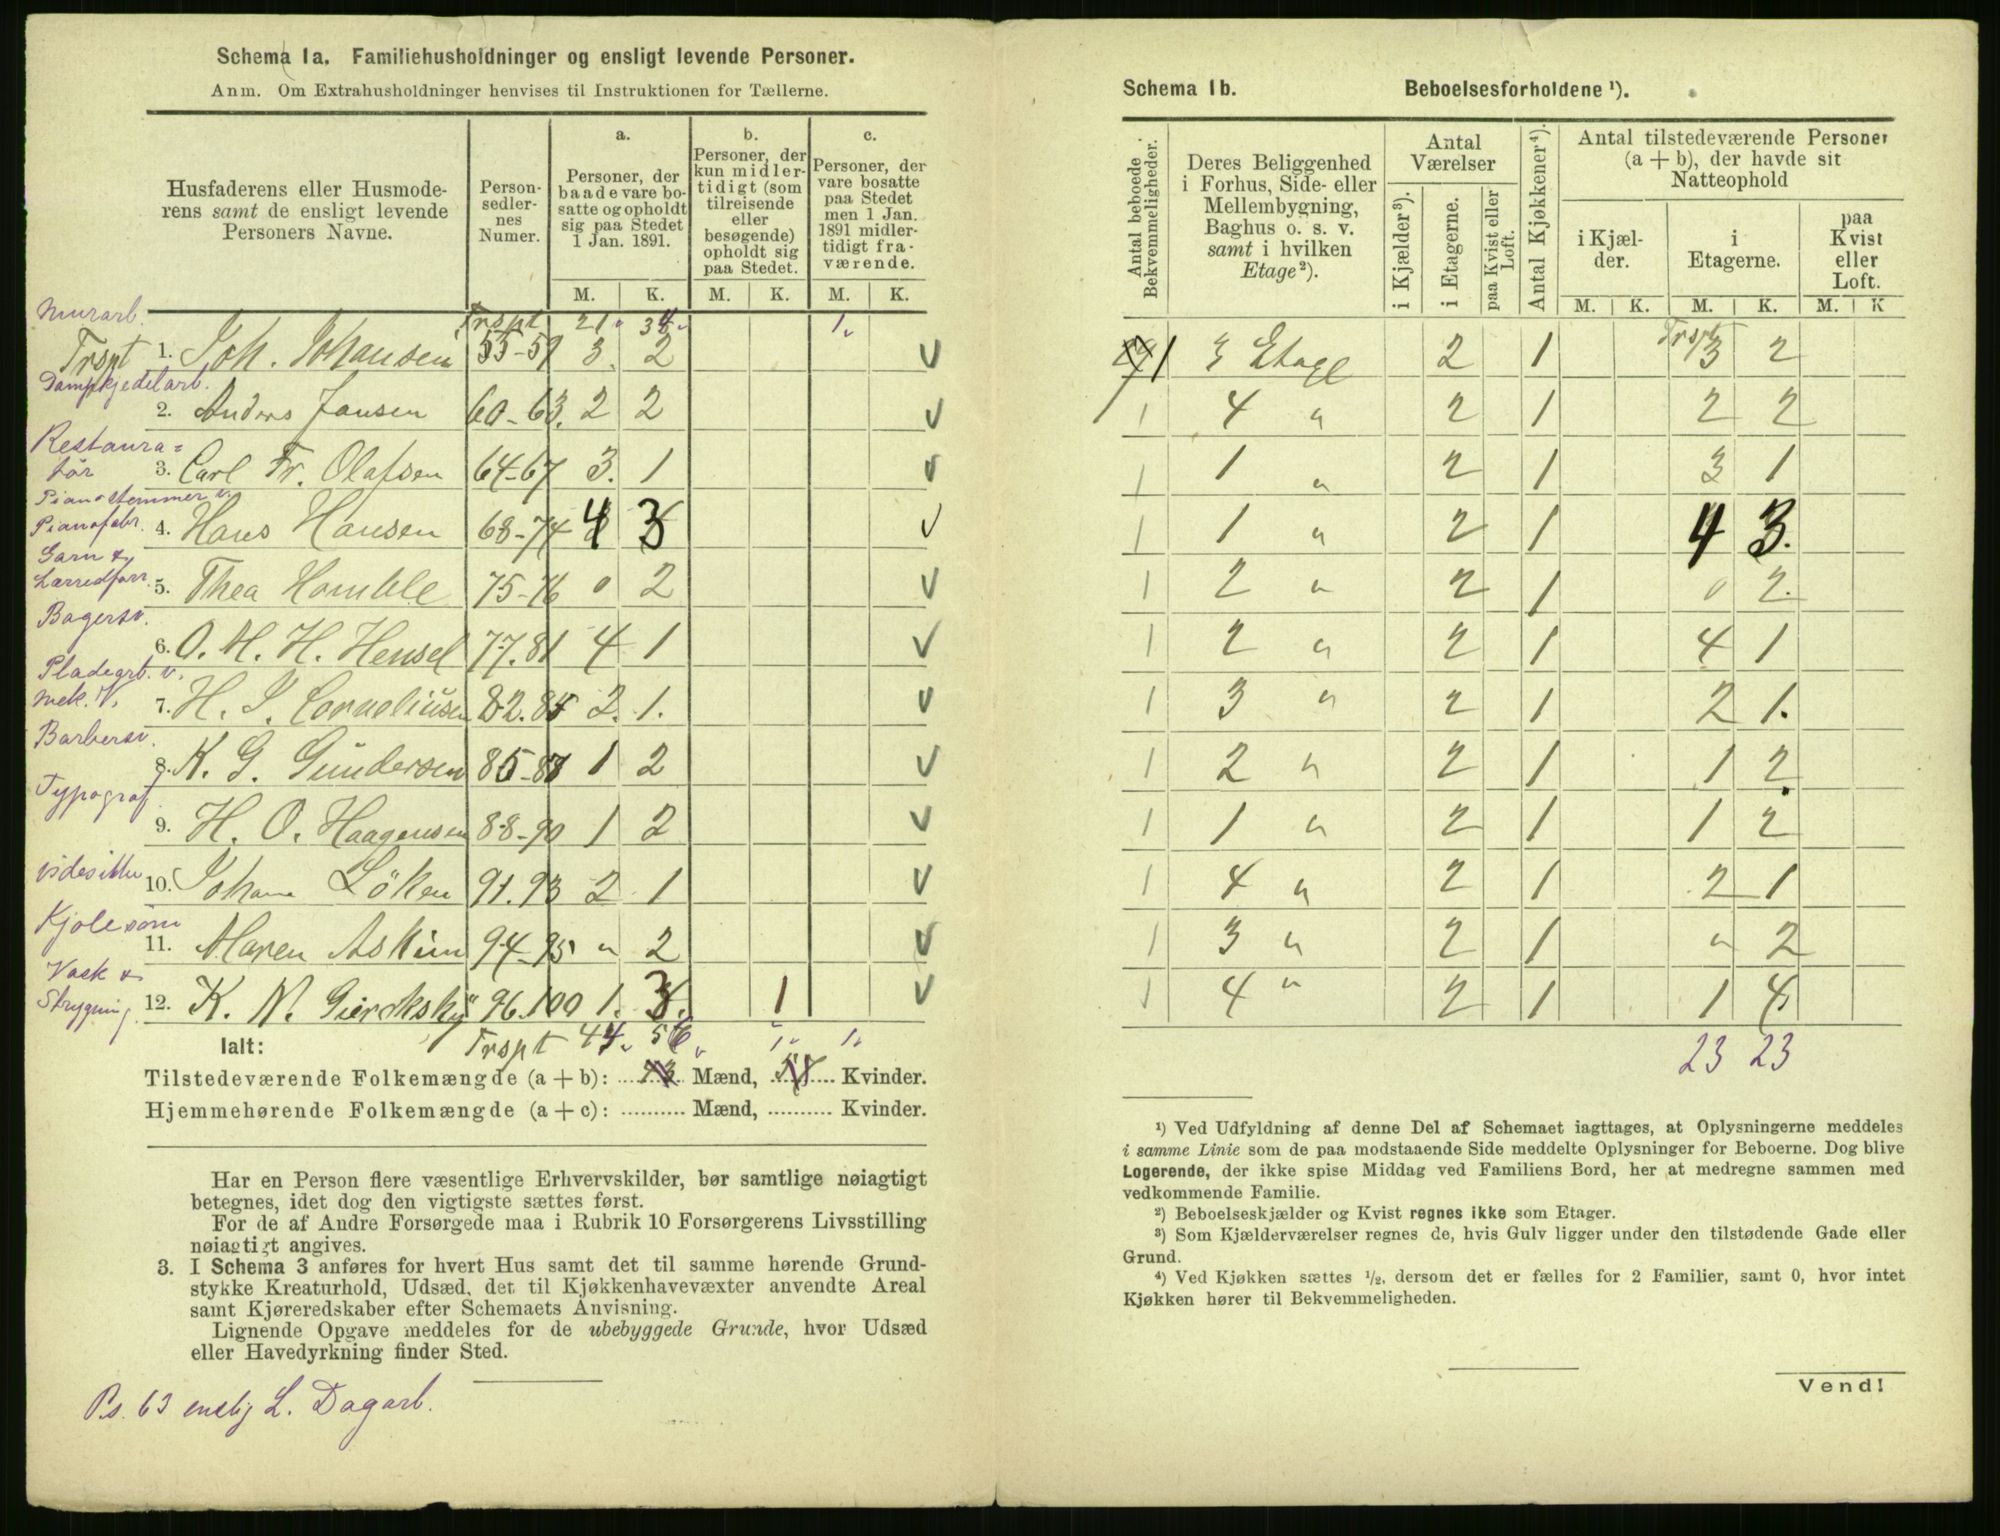 Schema 1a. Familiehusholdninger og ensligt levende Personer.
Anm. Om Extrahusholdninger henvises til Instruktionen for Tællerne.
Husfaderens eller Husmode-
rens samt de ensligt levende
Personers Navne.
Person-
sedler-
nes
Numer.
a.
Personer, der
baade vare bo-
satte og opholdt
sig paa Stedet
1 Jan. 1891.
b.
Personer, der
kun midler-
tidigt (som
tilreisende
eller
besøgende)
opholdt sig
paa Stedet.
c.
Personer, der
vare bosatte
paa Stedet
men 1 Jan.
1891 midler-
tidigt fra-
værende.
M. K. M. K. M. K.
Murarb.
Trspt 21. 34. 1.
Trspt 1. Joh. Johansen 55-59 3. 2 v
Dampkjedelarb.
2. Anders Jansen 60-63. 2 2 v
Restaura=
tør 3. Carl Fr. Olafsen 64-67 3. 1 v
Pianostemmer v.
Pianofabr. 4. Hans Hansen 68-74 4 3 v
Garn &
Lærredforr. 5. Thea Homble 75-76 0 2 v
Bagersv.
6. O. M. H. Hensel 77.81 4 1 v
Pladearb. v.
mek. V. 7. H. J. Corneliusen 82.84 2. 1. v
Barbersv.
8. K. G. Gundersen 85-87 1 2 v
Typograf
9. H. O. Haagensen 88-90 1 2 v
10. Johan Löken 91.93 2 1 v
Kjolesøm
11. Maren Askim 94-95 " 2 v
Vask &
Strygning 12. K. N. 96.100 1. 3. 1 v
Ialt: Trspt 44. 56 " 1. 1.
Tilstedeværende Folkemængde (a + b): Mænd, Kvinder.
Hjemmehørende Folkemængde (a + c): .......... Mænd, .......... Kvinder.
Har en Person flere væsentlige Erhvervskilder, bør samtlige nøiagtigt
betegnes, idet dog den vigtigste sættes først.
For de af Andre Forsørgede maa i Rubrik 10 Forsørgerens Livsstilling
nøiagtigt angives.
3. I Schema 3 anføres for hvert Hus samt det til samme hørende Grund-
stykke Kreaturhold, Udsæd, det til Kjøkkenhavevæxter anvendte Areal
samt Kjøreredskaber efter Schemaets Anvisning.
Lignende Opgave meddeles for de ubebyggede Grunde, hvor Udsæd
eller Havedyrkning finder Sted.
Ps. 63 enslig L. Dagarb.
Schema 1b. Beboelsesforholdene ¹).
Antal beboede
Bekvemmeligheder.
Deres Beliggenhed
i Forhus, Side- eller
Mellembygning,
Baghus o. s. v.
samt i hvilken
Etage²).
Antal
Værelser
i Kjælder³).
i Etagerne.
paa Kvist eller
Loft.
Antal Kjøkkener⁴).
Antal tilstedeværende Personer
(a + b), der havde sit
Natteophold
i Kjæl-
der.
i
Etagerne.
paa
Kvist
eller
Loft.
M. K. M. K. M. K
Trspt
1 3 Etage 2 1 3 2
1 4 " 2 1 2 2
1 1 " 2 1 3 1
1 1 " 2 1 4 3.
1 2 " 2 1 0 2.
1 2 " 2 1 4 1
1 3 " 2 1 2 1.
1 2 " 2 1 1 2
1 1 " 2 1 1 2
1 4 " 2 1 2 1
1 3 " 2 1 " 2
1 4 " 2 1 1 4
23 23
¹) Ved Udfyldning af denne Del af Schemaet iagttages, at Oplysningerne meddeles
i samme Linie som de paa modstaaende Side meddelte Oplysninger for Beboerne. Dog blive
Logerende, der ikke spise Middag ved Familiens Bord, her at medregne sammen med
vedkommende Familie.
²) Beboelseskjælder og Kvist regnes ikke som Etager.
³) Som Kjælderværelser regnes de, hvis Gulv ligger under den tilstødende Gade eller
Grund.
⁴) Ved Kjøkken sættes ½, dersom det er fælles for 2 Familier, samt 0, hvor intet
Kjøkken hører til Bekvemmeligheden.
Vend!